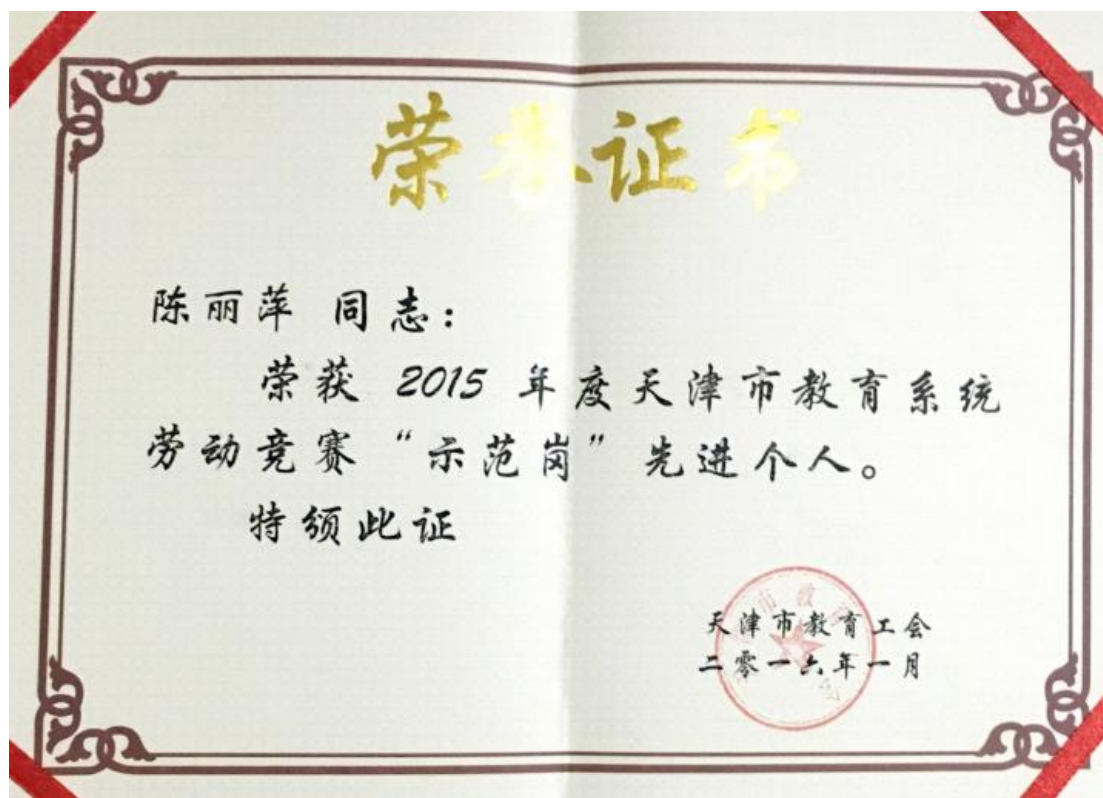 荣誉证书
陈丽萍 同志：
荣获 2015 年度天津市教育系统
劳动竞赛“示范岗”先进个人。
特颁此证
天津市教育工会
二零一六年一月